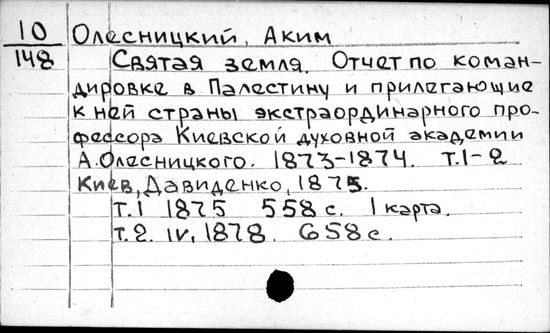 10 Олесницкий, Аким
148 Святая земля. Отчет по коман-
дировке в Палестину и прилегающие
к ней страны экстраординарного про-
фессора Киевской духовной академии
А. Олесницкого. 1873-1874. Т.1-2
Киев, Давиденко, 1875.
Т.1 1875 558 с. 1 карта.
Т.2. IV, 1878. 658 с.